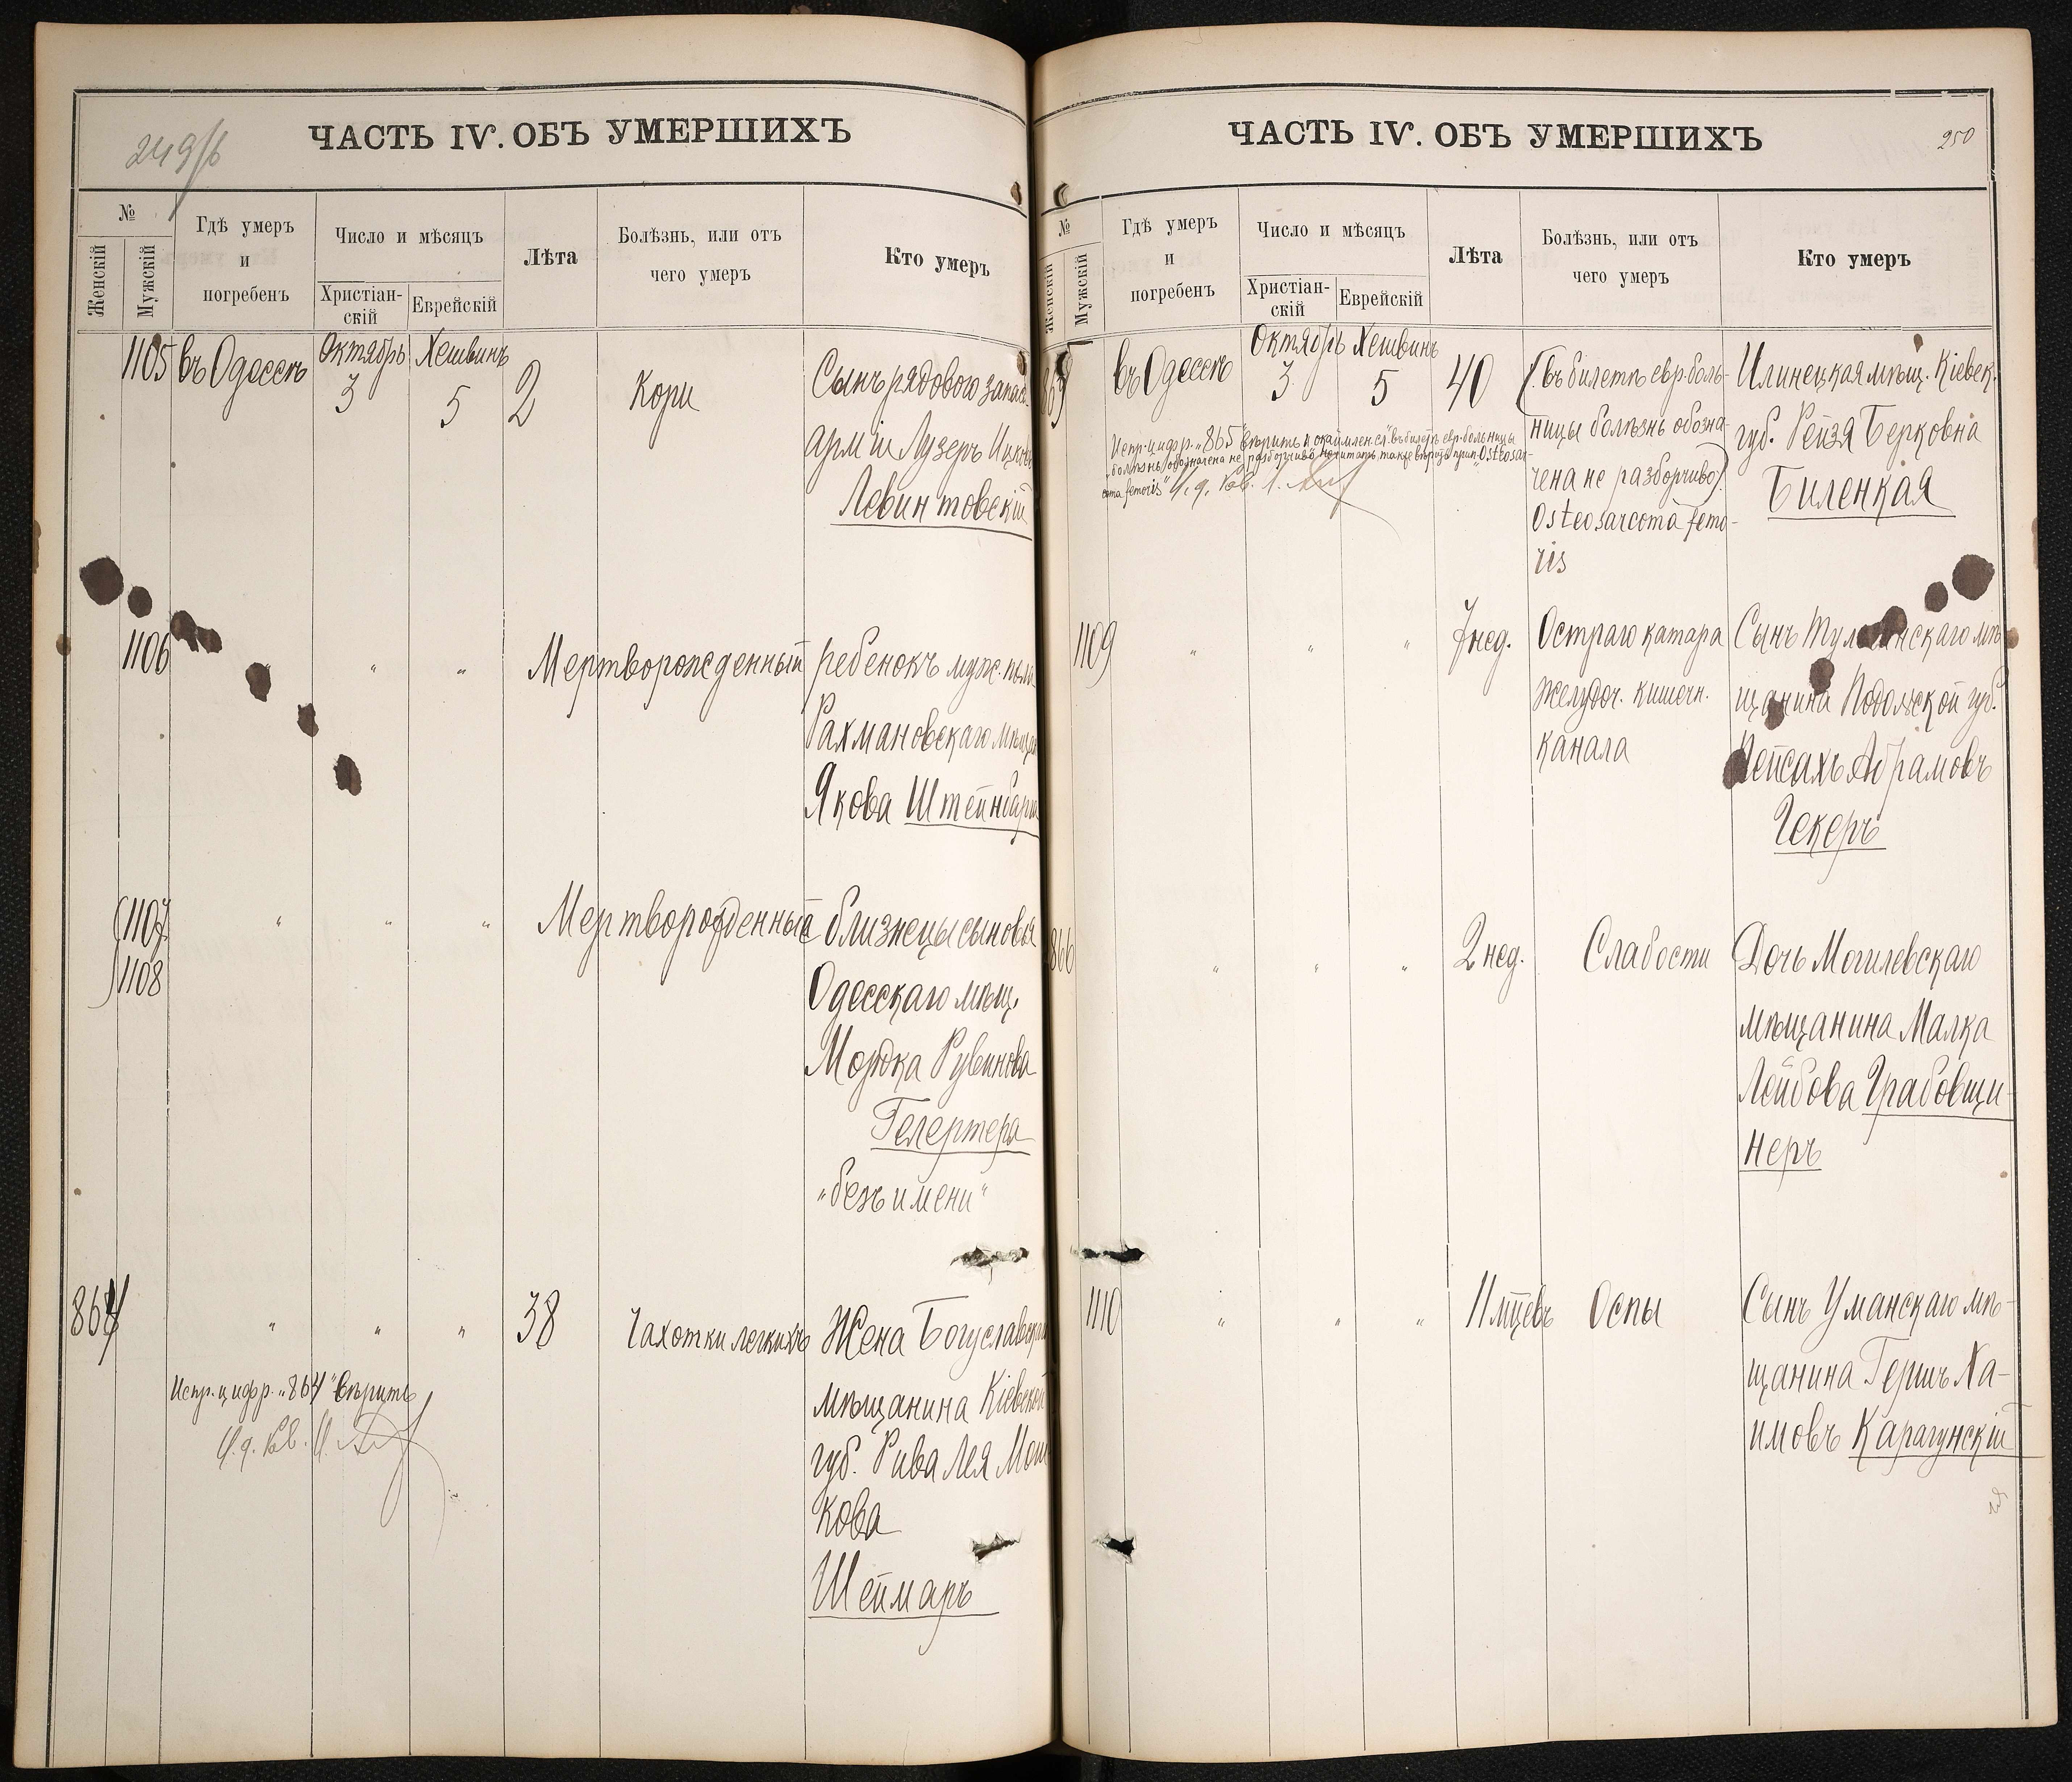 249/б
ЧАСТЬ IV. ОБЪ УМЕРШИХЪ
№
Женскій
Мужскій
Гдѣ умеръ
и
погребенъ
Число и мѣсяцъ
Христіан-
скій
Еврейскій
Лѣта
Болѣзнь, или отъ
чего умеръ
Кто умеръ
1105 въ Одессѣ Октябрь 3 Хешвинъ 5 2 Кори Сынъ рядового запас.
арміи Лузеръ Ицков
Левинтовскій
1106 " " Мертворожденный ребенокъ муж. пола
Рахмановскаго мѣщан
Якова Штейнбарга
1107 " " " Мертворожденные близнецы сыновья
1108 Одесскаго мѣщ.
Мордка Рувинова
Гелертера
"безъ имени"
864 " " " 38 Чахотки легкихъ Жена Богуславскаго
мѣщанина Кіевской
губ. Рива Лея Мош
кова
Шеймаръ
Испр. цифр. "864" вѣрить
И. д. Рав.
ЧАСТЬ IV. ОБЪ УМЕРШИХЪ
250
№
Женскій
Мужскій
Гдѣ умеръ
и
погребенъ
Число и мѣсяцъ
Христіан-
скій
Еврейскій
Лѣта
Болѣзнь, или отъ
чего умеръ
Кто умеръ
865 въ Одессѣ Октябрь 3 Хешвинъ 5 40 (въ билетѣ евр. боль-
ницы болѣзнь обозна-
чена не разборчиво)
Osteosarcoma femo-
ris
Илинецкая мѣщ. Кіевск.
губ. Рейзя Берковна
Биленкая
Испр. цифр. "865" вѣрить, а окаймлен. сл. "въ билетѣ евр. больницы
болѣзнь обозначена не разборчиво" не читать, также вѣрить прип. "Osteosar-
coma femoris" И. д. Рав.
1109 " " " 7 нед. Остраго катара
желудоч. кишечн.
канала
Сынъ
щанина Подольской губ.
Пейсахъ Абрамовъ
Чекеръ
866 " " " 2 нед. Слабости Дочь Могилевскаго
мѣщанина Малка
Лейбова Грабовщи-
неръ
1110 " " " 11 мцевъ Оспы Сынъ Уманскаго мѣ-
щанина Гершъ Ха-
имовъ Карагунскій